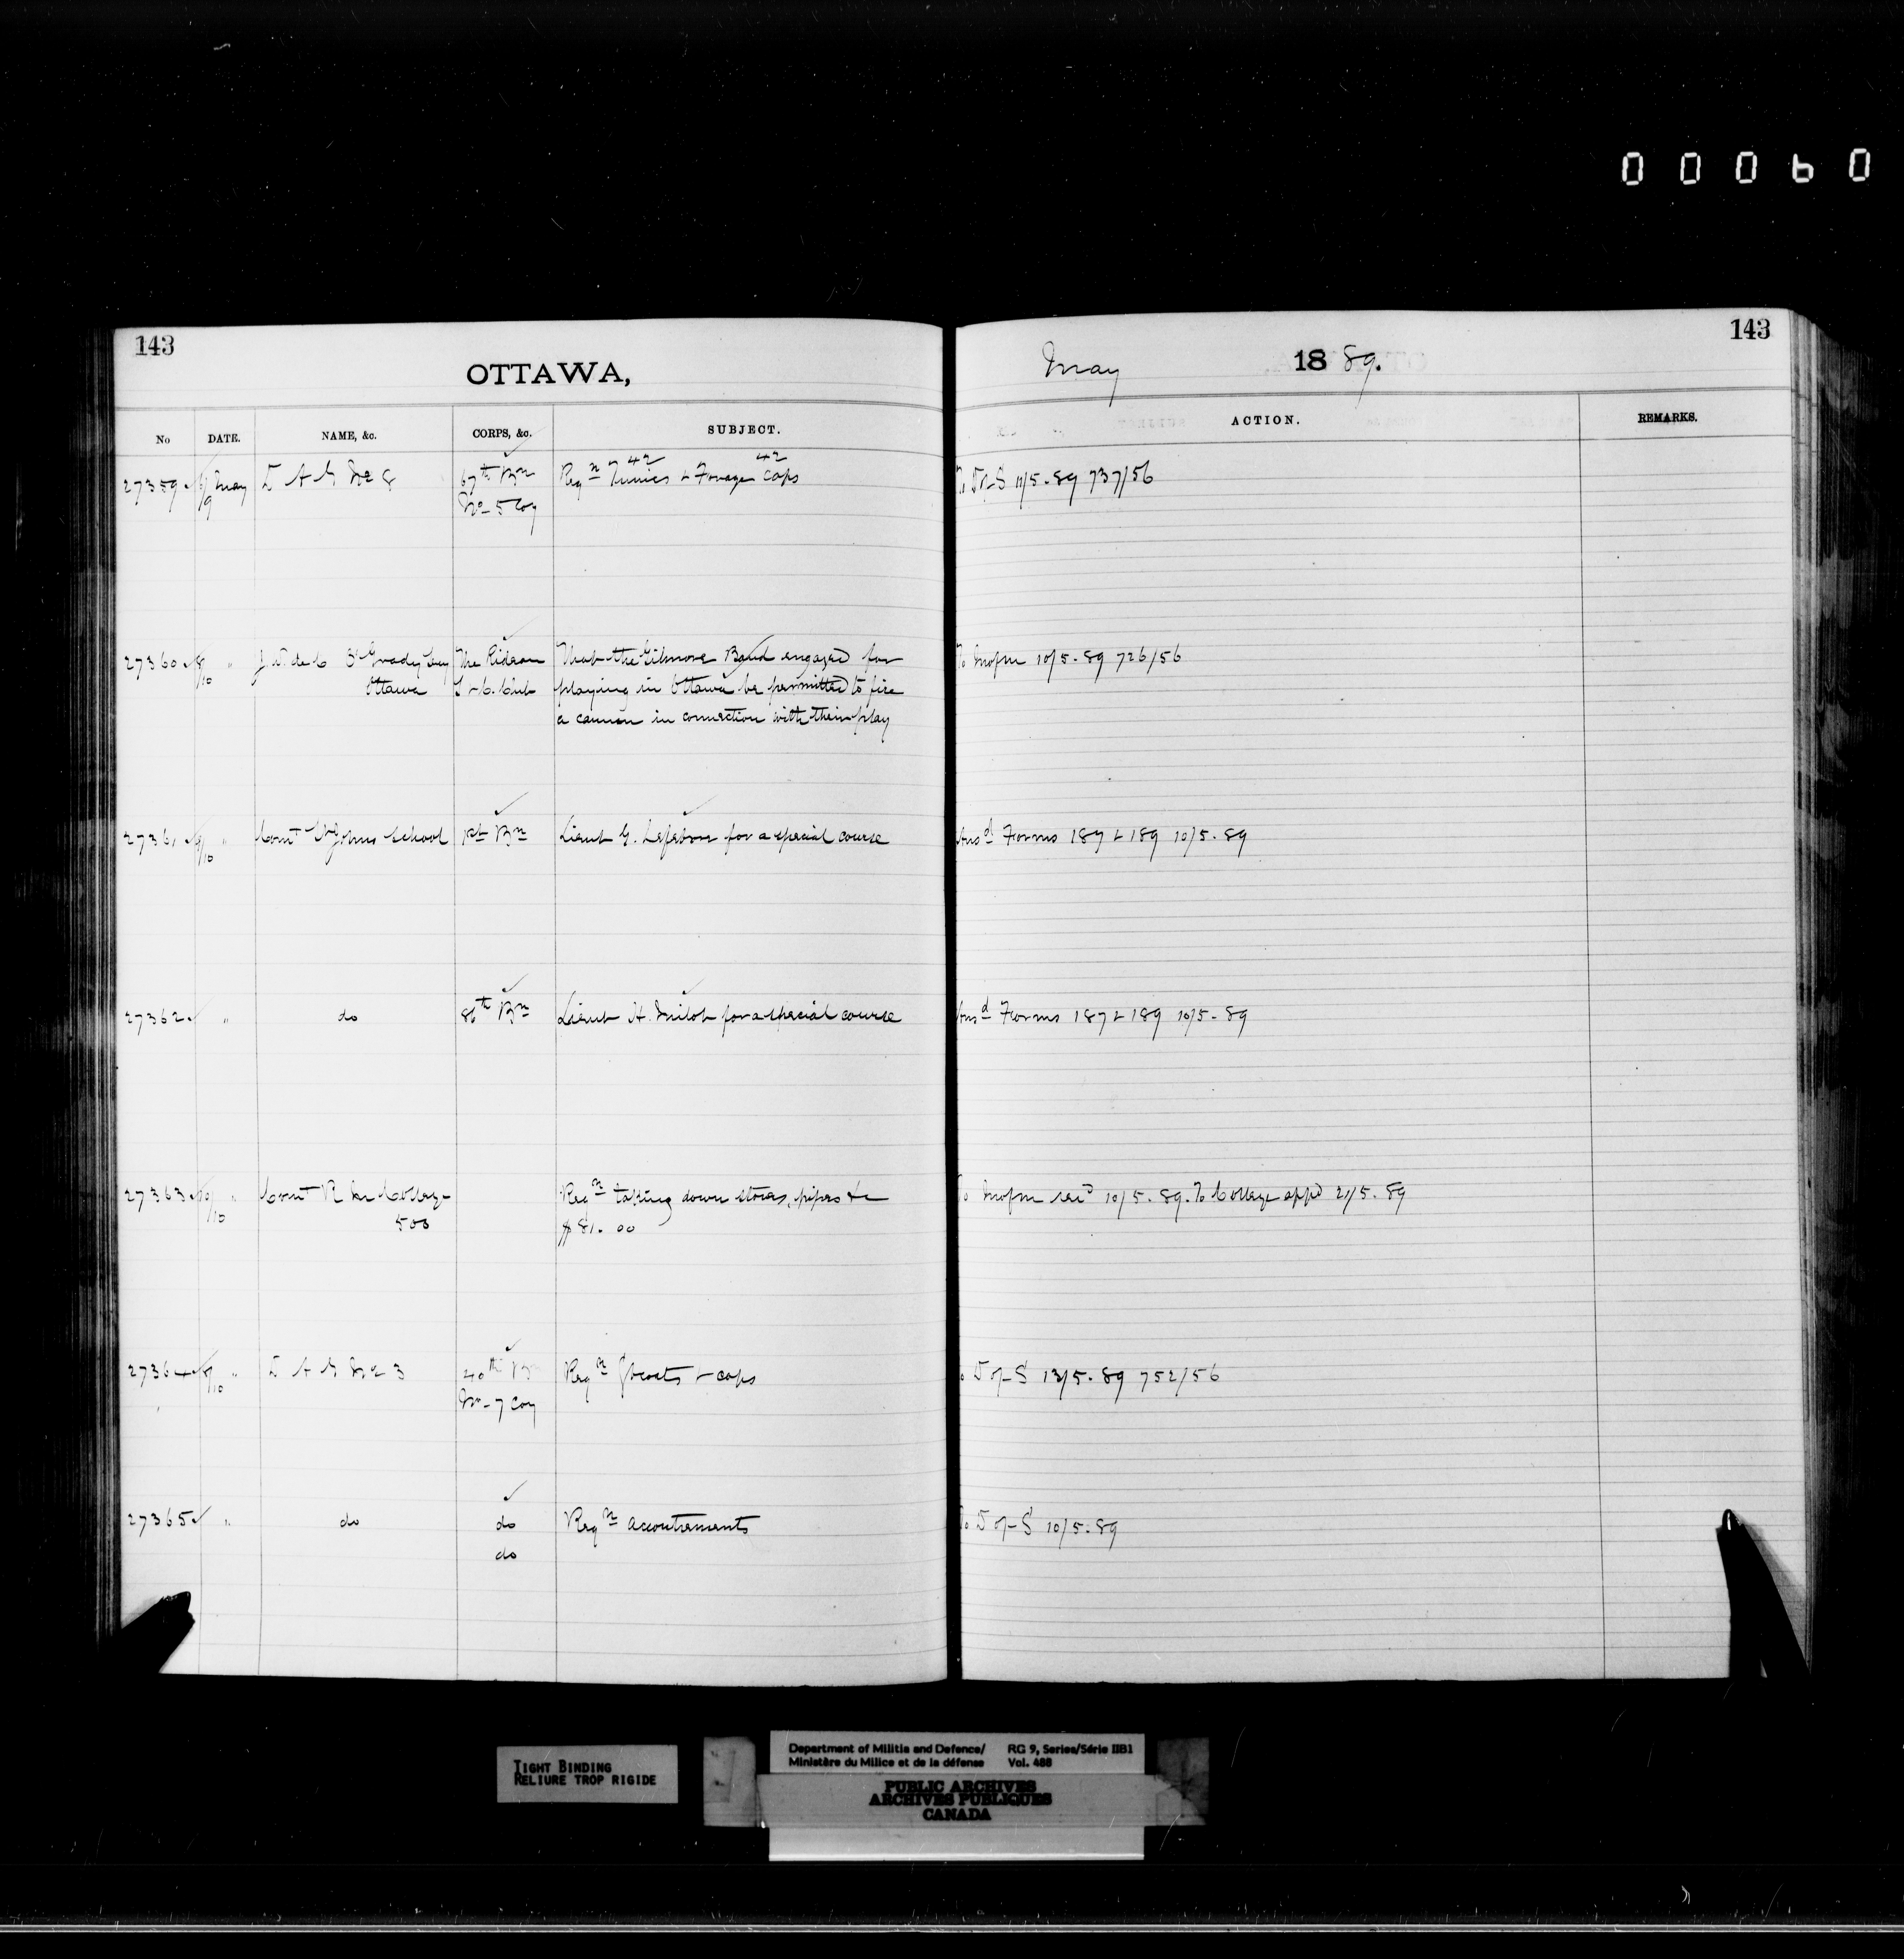 00060
143
OTTAWA,
No DATE. NAME, &c. CORPS, &c. SUBJECT.
27359 9 May D A G No 8 67th Bn Reqn 42 Tunics & Forage 42 Caps
No 5 Coy
27360 8/10 " O'Grady Ottawa The Rideau That the Gilmore Band engaged for
Club playing in Ottawa be permitted to fire
a cannon in connection with their play
27361 9/10 " Comt St Johns School Bn Lieut G. Lefebvre for a special course
27362 " do 86th Bn Lieut H. for a special course
27363 10/10 " Comt R Mil College Reqn taking down stoves, pipes &c
500 $81.00
27364 8/10 " D A G No 3 40th Bn Reqn Gcoats & caps
No 7 Coy
27365 " do do Reqn accoutrements
do
143
May 1889.
ACTION. REMARKS.
To D of S 11/5.89 737/56
To 10/5.89 726/56
Ansd Forms 187 & 189 10/5.89
Ansd Forms 187 & 189 10/5.89
To 10/5.89. To College appd 21/5.89
To D of S 13/5.89 752/56
To D of S 10/5.89
TIGHT BINDING
RELIURE TROP RIGIDE
Department of Militia and Defence/ RG 9, Series/Série IIB1
Ministère du Milice et de la défense Vol. 488
PUBLIC ARCHIVES
ARCHIVES PUBLIQUES
CANADA